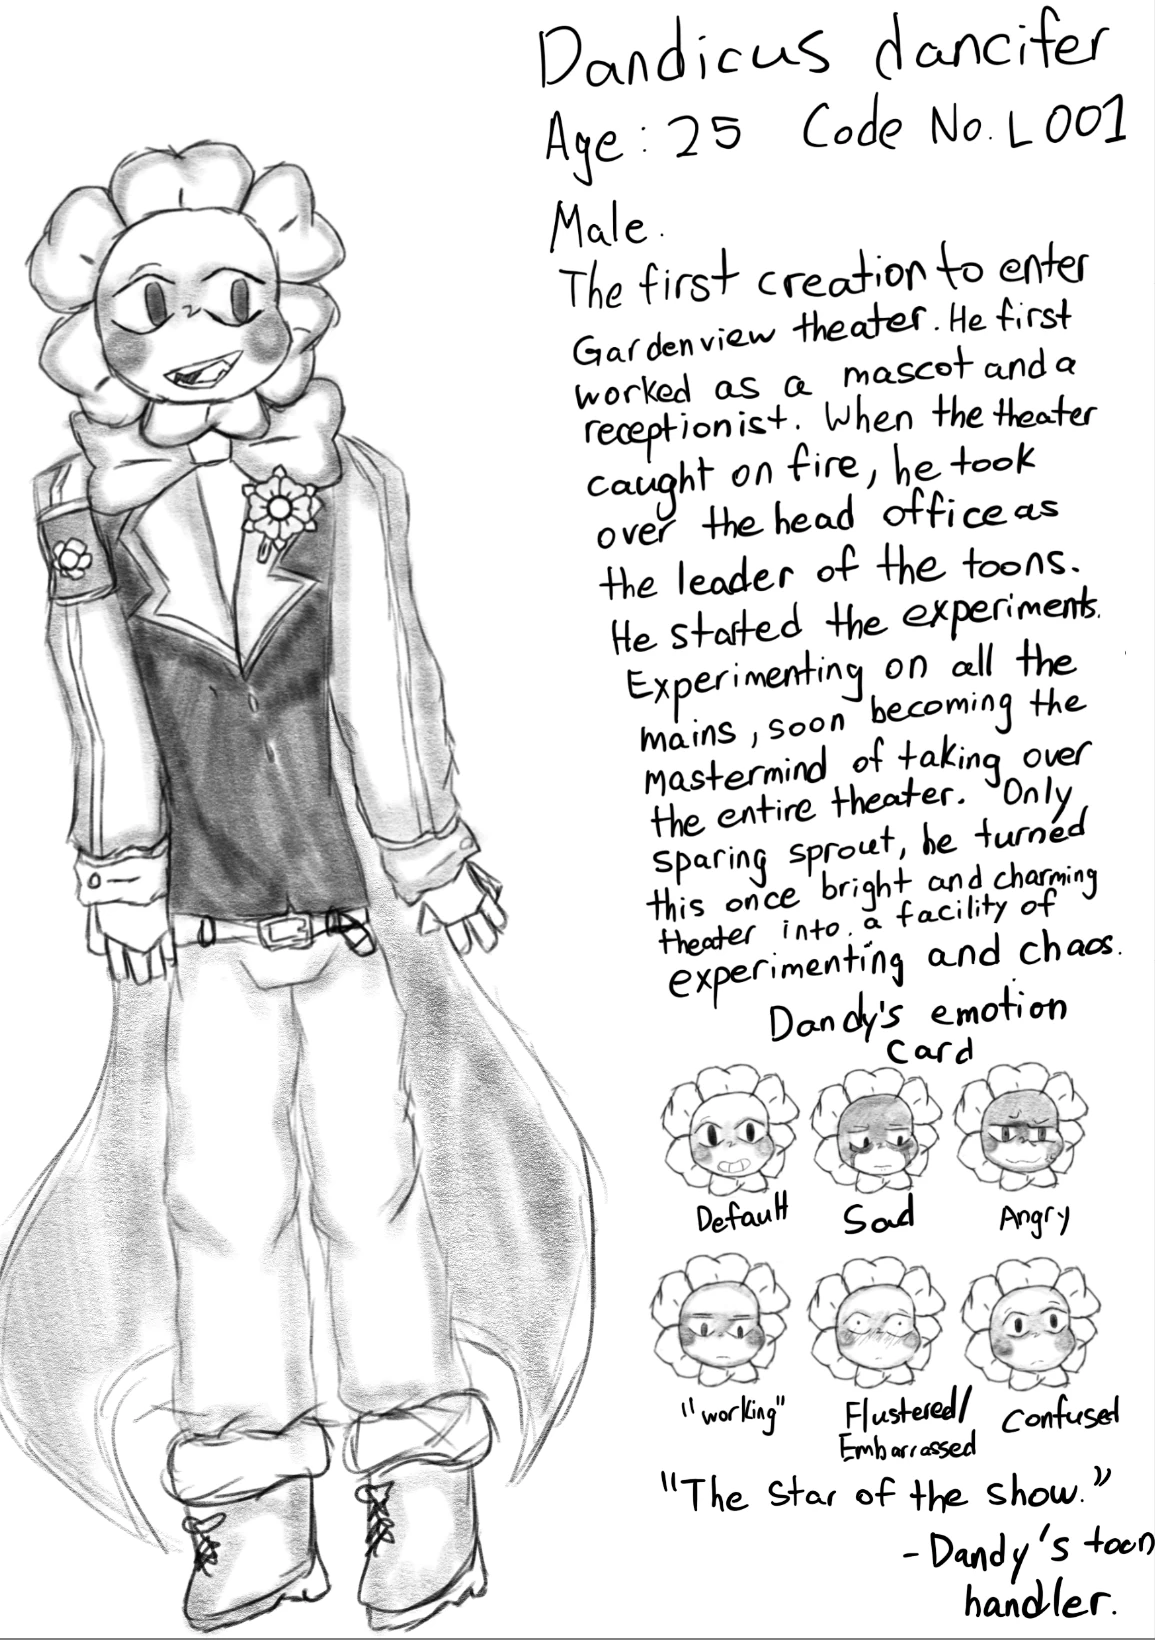 Dandicus dancifer
Age: 25 Code No. L001
Male.
The first creation to enter
Gardenview theater. He first
worked as a mascot and a
receptionist. When the theater
caught on fire, he took
over the head office as
the leader of the toons.
He started the experiments.
Experimenting on all the
mains, soon becoming the
mastermind of taking over
the entire theater. Only
sparing sprout, he turned
this once bright and charming
theater into. a facility of
experimenting and chaos.
Dandy's emotion
card
Default Sad Angry
"working" Flustered/ Confused
Embarrassed
"The star of the show."
- Dandy's toon
handler.